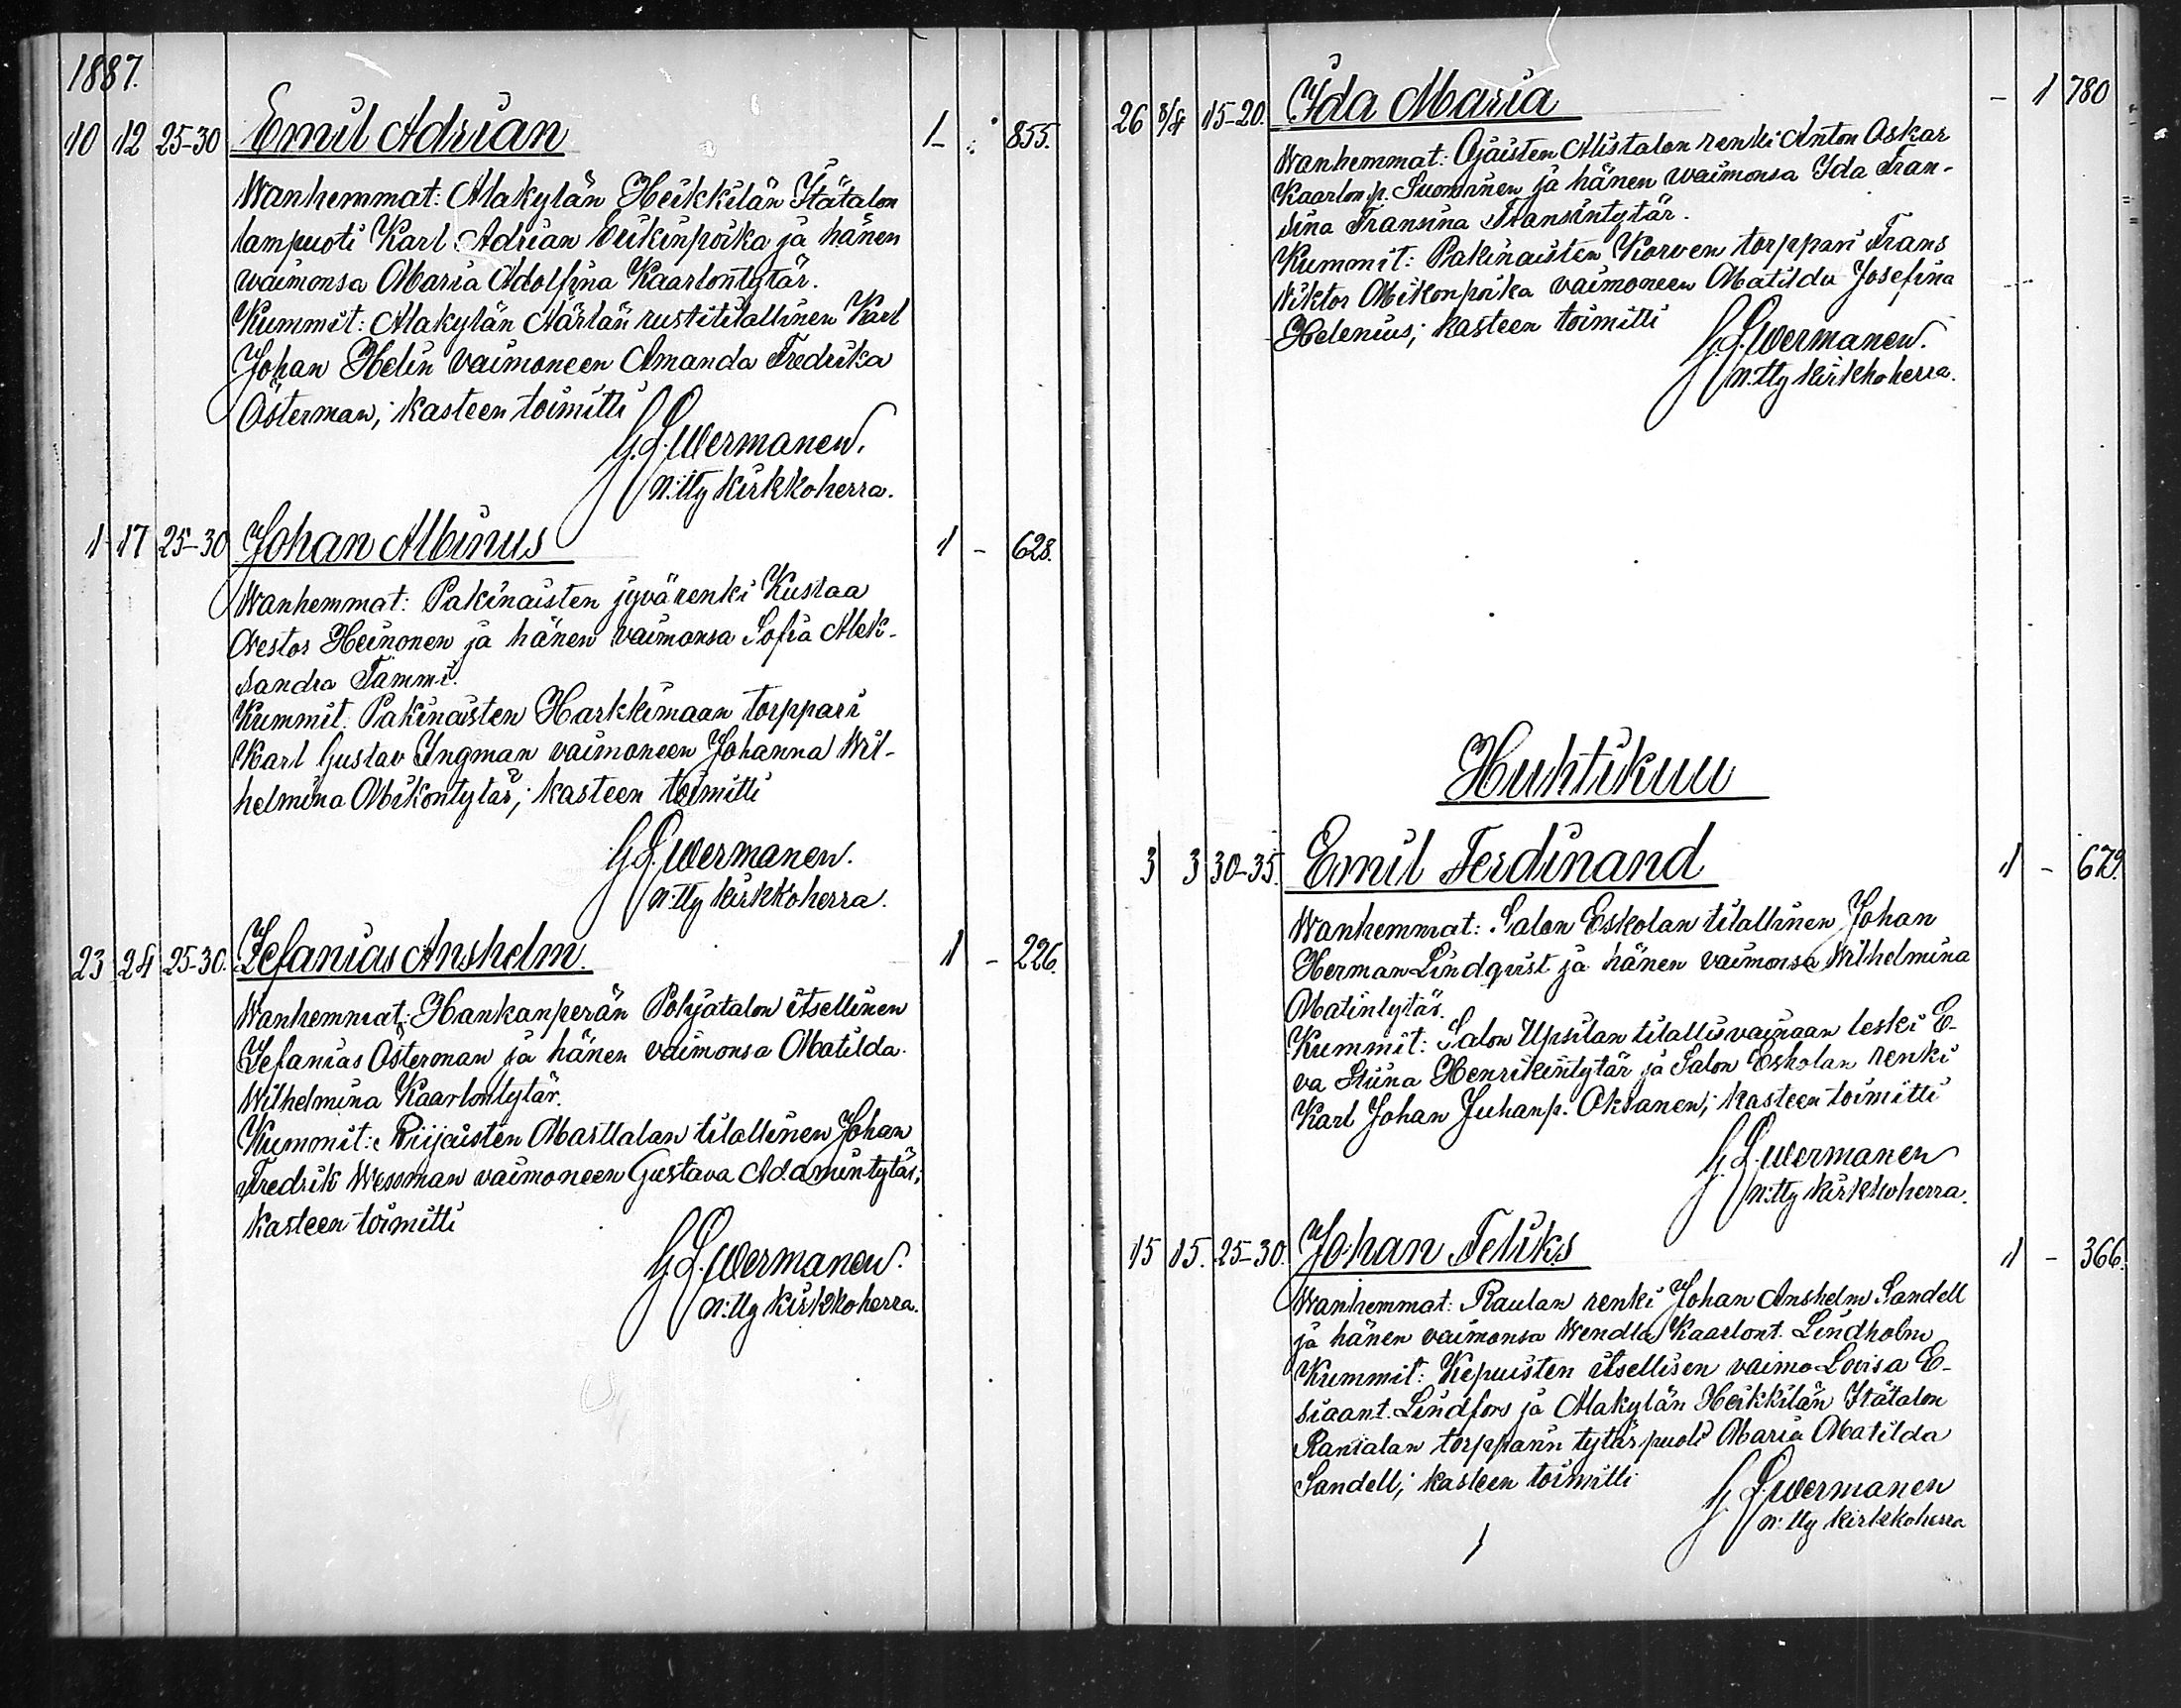 1887.
10 12 25-30 Emil Adrian 1 - 855.
Wanhemmat: Alakylän Heikkilän Itätalon
lampuoti Karl Adrian Eerikinpoika ja hänen
vaimonsa Maria Adolfina Kaarlontytär.
Kummit: Alakylän Närlän rustitilallinen Karl
Johan Helin vaimoneen Amanda Fredrika
Österman; kasteen toimitti
G. L. Wermanen.
n:tty kirkkoherra.
1 17 25-30 Johan Albinus 1 - 628.
Wanhemmat: Pakinaisten jyvärenki Kustaa
Nestor Heinonen ja hänen vaimonsa Sofia Alek-
sandra Tammi.
Kummit: Pakinaisten Harkkimaan torppari
Karl Gustav Ingman vaimoneen Johanna Wil-
helmina Mikontytär; kasteen toimitti
G. L. Wermanen.
n:tty kirkkoherra.
23 24 25-30. Zefanias Anshelm. 1 - 226.
Wanhemmat: Hankanperän Pohjatalon itsellinen
Zefanias Österman ja hänen vaimonsa Matilda
Wilhelmina Kaarlontytär.
Kummit: Riijaisten Marttalan tilallinen Johan
Fredrik Wessman vaimoneen Gustava Adamintytär;
kasteen toimitti
G. L. Wermanen.
n:tty kirkkoherra.
26 3/4 15-20. Ida Maria - 1 780
Wanhemmat: Ajaisten Alistalon renki Anton Oskar
Kaarlonp. Suominen ja hänen vaimonsa Ida Fran-
sina Fransina Fransintytär.
Kummit: Pakinaisten Korven torppari Frans
Viktor Mikonpoika vaimoneen Matilda Josefina
Helenius; kasteen toimitti
G. L. Wermanen.
n:tty kirkkoherra.
Huhtikuu
3 3 30-35. Emil Ferdinand 1 - 679.
Wanhemmat: Salon Eskolan tilallinen Johan
Herman Lindqvist ja hänen vaimonsa Wilhelmina
Matintytär.
Kummit: Salon Upsilan tilallisvainaan leski E-
va Stiina Henrikintytär ja Salon Eskolan renki
Karl Johan Juhanp. Oksanen; kasteen toimitti
G. L. Wermanen
n:tty kirkkoherra.
15 15. 25-30. Johan Feliks 1 - 366.
Wanhemmat: Raulan renki Johan Anshelm Sandell
ja hänen vaimonsa Wendla Kaarlont. Lindholm
Kummit: Kepuisten itsellisen vaimo Lovisa E-
siaant. Lindfors ja Alakylän Heikkilän Itätalon
Rantalan torpparin tytärpuoli Maria Matilda
Sandell; kasteen toimitti
G. L. Wermanen
n:tty kirkkoherra